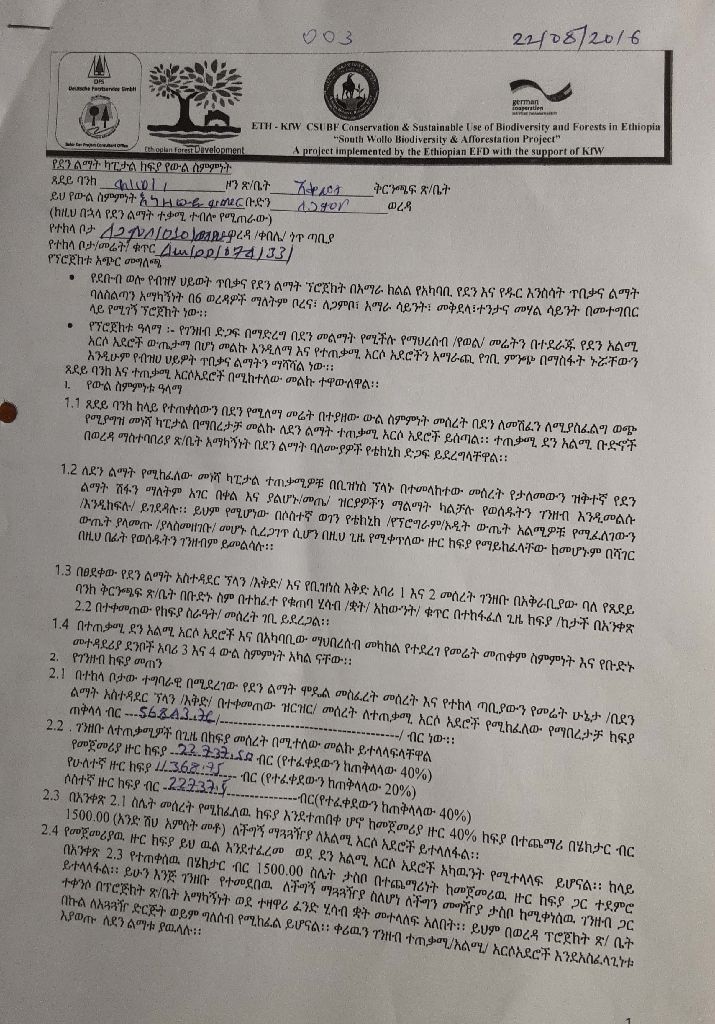 003
22/08/2016
DFS
Deutsche Forstservice GmbH
Ethiopian Forest Development
german
cooperation
ETH - KfW CSUBF Conservation & Sustainable Use of Biodiversity and Forests in Ethiopia
"South Wollo Biodiversity & Afforestation Project"
A project implemented by the Ethiopian EFD with the support of KfW
የደን ልማት ካፒታል ከፍያ የውል ስምምነት
ጸደይ ባንክ ዞን ጽ/ቤት ቅርንጫፍ ጽ/ቤት
ይህ የውል ስምምነት ቡድን ወረዳ
(ከዚህ በኋላ የደን ልማት ተቃሚ ተብሎ የሚጠራው)
የተከላ ቦታ ወረዳ /ቀበሌ/ ጎጥ ጣቢያ
የተከላ ቦታ/መሬት/ ቁጥር
የፕሮጀክቱ አጭር መግለጫ
• የደቡብ ወሎ የብዝሃ ህይወት ጥበቃና የደን ልማት ፕሮጀክት በአማራ ክልል የአካባቢ የደን እና የዱር እንስሳት ጥበቃና ልማት
ባለስልጣን አማካኝነት በ6 ወረዳዎች ማለትም ቦረና፣ ሌጋምቦ፣ አማራ ሳይንት፣ መቅደላ፣ተንታና መሃል ሳይንት በመተግበር
ላይ የሚገኝ ፕሮጀክት ነው፡፡
• የፕሮጀክቱ ዓላማ ፡- የገንዘብ ድጋፍ በማድረግ በደን መልማት የሚችሉ የማህረሰብ /የወል/ መሬትን በተደራጁ የደን አልሚ
አርሶ አደሮች ውጤታማ በሆነ መልኩ እንዲለማ እና የተጠቃሚ አርሶ አደሮችን አማራጪ የገቢ ምንጭ በማስፋት ኑሯቸውን
እንዲሁም የብዝሀ ህይዎት ጥበቃና ልማትን ማሻሻል ነው፡፡
ጸደይ ባንክ እና ተጠቃሚ አርሶአደሮች በሚከተለው መልኩ ተዋውለዋል፡፡
1. የውል ስምምነቱ ዓላማ
1.1 ጸደይ ባንክ ከላይ የተጠቀሰውን በደን የሚለማ መሬት በተያዘው ውል ስምምነት መሰረት በደን ለመሸፈን ለሚያስፈልግ ወጭ
የሚያግዝ መነሻ ካፒታል በማበረታቻ መልኩ ለደን ልማት ተቃሚ አርሶ አደሮች ይሰጣል፡፡ ተጠቃሚ ደን አልሚ ቡድኖች
በወረዳ ማስተባበሪያ ጽ/ቤት አማካኝነት በደን ልማት ባለሙያዎች የቴክኒክ ድጋፍ ይደረግላቸዋል፡፡
1.2 ለደን ልማት የሚከፈለው መነሻ ካፒታል ተጠቃሚዎቹ በቢዝነስ ፕላኑ በተመላከተው መሰረት የታለመውን ዝቅተኛ የደን
ልማት ሽፋን ማለትም አገር በቀል እና ያልሆኑ/መጤ/ ዝርያዎችን ማልማት ካልቻሉ የወሰዱትን ገንዘብ እንዲመልሱ
/እንዲከፍሉ/ ይገደዳሉ፡፡ ይህም የሚሆነው በሶስተኛ ወገን የቴክኒክ /የፕሮግራም/ኦዲት ውጤት አልሚዎቹ የሚፈለገውን
ውጤት ያላመጡ /ያላስመዘገቡ/ መሆኑ ሲረጋገጥ ሲሆን በዚህ ጊዜ የሚቀጥለው ዙር ከፍያ የማይከፈላቸው ከመሆኑም በሻገር
በዚህ በፊት የወሰዱትን ገንዘብም ይመልሳሉ፡፡
1.3 በፀደቀው የደን ልማት አስተዳደር ፕላን /እቅድ/ እና የቢዝነስ እቅድ አባሪ 1 እና 2 መሰረት ገንዘቡ በአቅራቢያው ባለ የጸደይ
ባንክ ቅርንጫፍ ጽ/ቤት በቡድኑ ስም በተከፈተ የቁጠባ ሂሳብ /ቋት/ አከውንት/ ቁጥር በተከፋፈለ ጊዜ ከፍያ /ከታች በአንቀጽ
2.2 በተቀመጠው የከፍያ ስራዓት/ መሰረት ገቢ ይደረጋል፡፡
1.4 በተጠቃሚ ደን አልሚ አርሶ አደሮች እና በአካባቢው ማህበረሰብ መካከል የተደረገ የመሬት መጠቀም ስምምነት እና የቡድኑ
መተዳደሪያ ደንቦች አባሪ 3 እና 4 ውል ስምምነት አካል ናቸው፡፡
2. የገንዘብ ከፍያ መጠን
2.1 በተከላ ቦታው ተግባራዊ በሚደረገው የደን ልማት ሞዴል መስፈረት መሰረት እና የተከላ ጣቢያውን የመሬት ሁኔታ /በደን
ልማት አስተዳደር ፕላን /እቅድ/ በተቀመጠው ዝርዝር/ መሰረት ለተጠቃሚ አርሶ አደሮች የሚከፈለው የማበረታቻ ከፍያ
ጠቅላላ ብር / ብር ነው፡፡
2.2 . ገንዘቡ ለተጠቃሚዎች በጊዜ በከፍያ መሰረት በሚተለው መልኩ ይተላላፍላቸዋል
የመጀመሪያ ዙር ከፍያ 22,737.50 ብር (የተፈቀደውን ከጠቅላላው 40%)
የሁለተኛ ዙር ከፍያ 11,368.75 ብር (የተፈቀደውን ከጠቅላላው 20%)
ሶስተኛ ዙር ከፍያ ብር 22737.5 ብር(የተፈቀደውን ከጠቅላላው 40%)
2.3 በአንቀጽ 2.1 ስሌት መሰረት የሚከፈለዉ ከፍያ እንደተጠበቀ ሆኖ ከመጀመሪያ ዙር 40% ከፍያ በተጨማሪ በሄክታር ብር
1500.00 (አንድ ሽህ አምስት መቶ) ለችግኝ ማጓጓዣ ለአልሚ አርሶ አደሮች ይተላለፋል፡፡
2.4 የመጀመሪያዉ ዙር ከፍያ ይህ ዉል እንደተፈረመ ወደ ደን አልሚ አርሶ አደሮች አካዉንት የሚተላላፍ ይሆናል፡፡ ከላይ
በአንቀጽ 2.3 የተጠቀሰዉ በሄክታር ብር 1500.00 ስሌት ታስቦ በተጨማሪነት ከመጀመሪዉ ዙር ከፍያ ጋር ተደምሮ
ይተላለፋል፡፡ ይሁን እንጅ ገንዘቡ የተመደበዉ ለችግኝ ማጓጓዣ ስለሆነ ለችግኝ መግዣያ ታስቦ ከሚቀነሰዉ ገንዘብ ጋር
ተቀንሶ በፕሮጀክት ጽ/ቤት አማካኝነት ወደ ተዛዋሪ ፈንድ ሂሳብ ቋት መተላለፍ አለበት፡፡ ይህም በወረዳ ፕሮጀክት ጽ/ ቤት
በኩል ለአጓጓዥ ድርጅት ወይም ግለሰብ የሚከፈል ይሆናል፡፡ ቀሪዉን ገንዘብ ተጠቃሚ/አልሚ/ አርሶአደሮች እንደአስፈላጊነቱ
እያወጡ ለደን ልማቱ ያዉላሉ፡፡
1